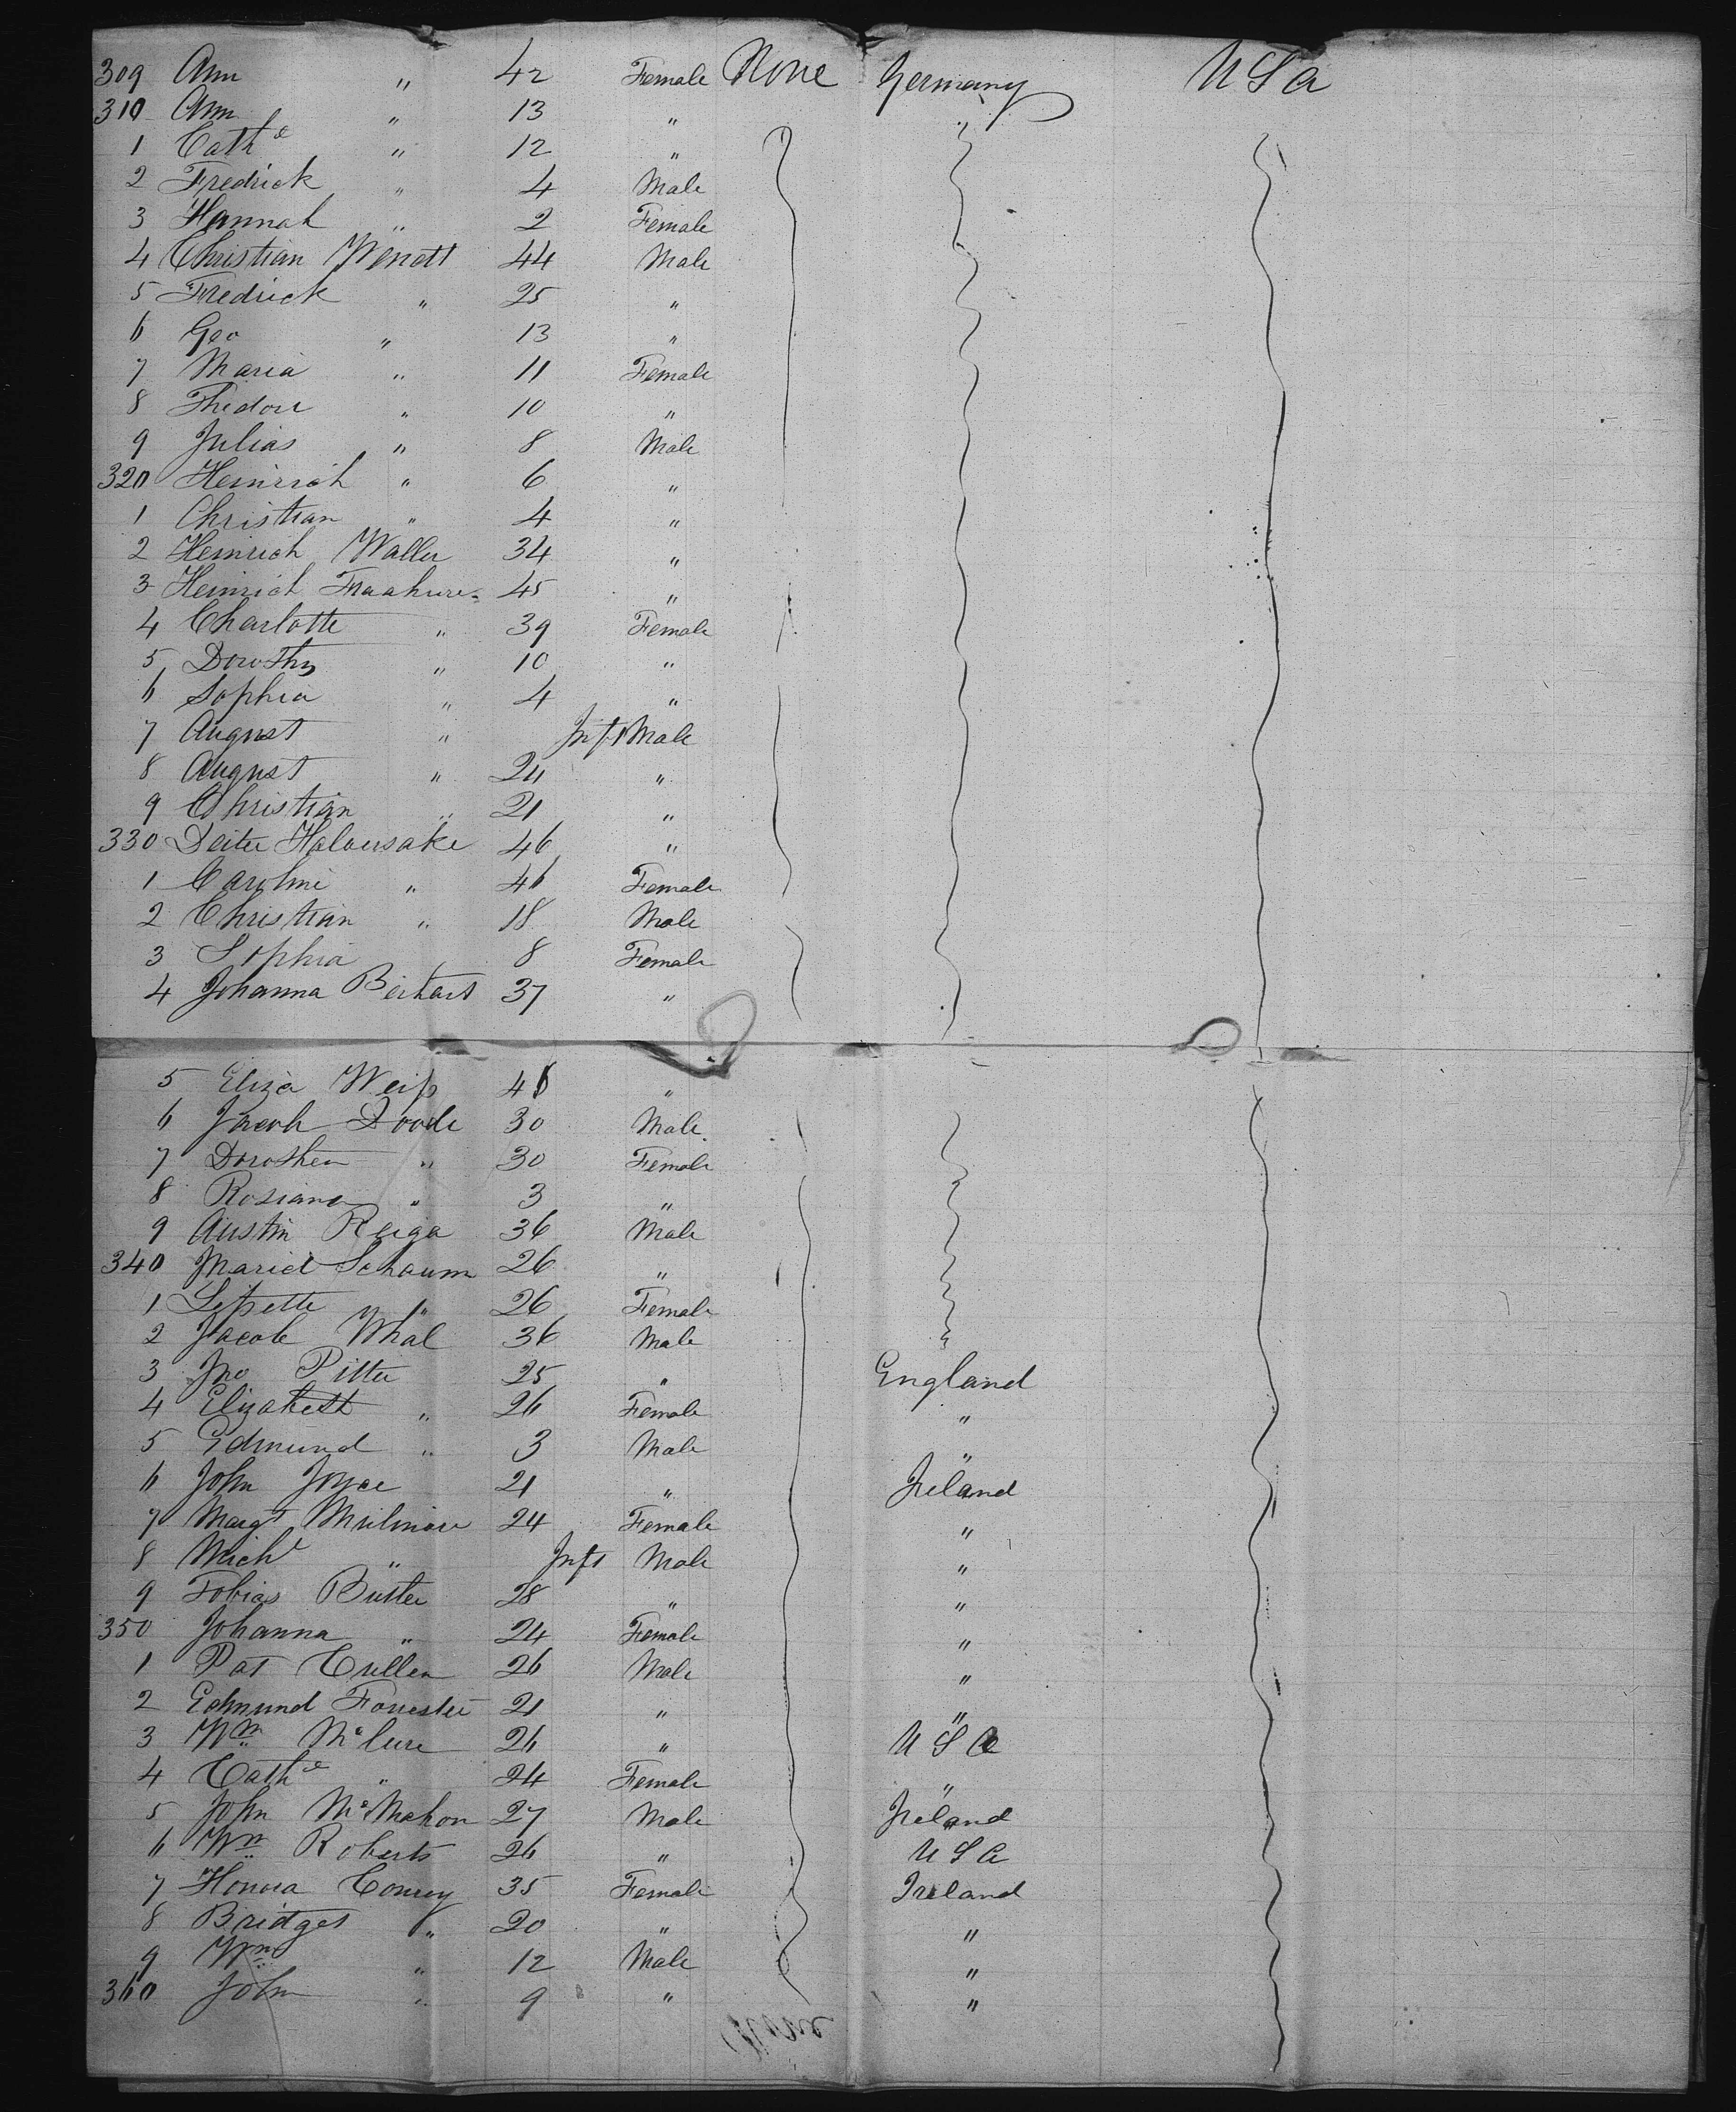 309 Ann " 42 Female None Germany U S A
310 Ann " 13 "
1 Cathe " 12 "
2 Fredrick " 4 Male
3 Hannah " 2 Female
4 Christian Wenott 44 Male
5 Fredrick " 25 "
6 Geo " 13 "
7 Maria " 11 Female
8 Thedore " 10 "
9 Julias " 8 Male
320 Heinrich " 6 "
1 Christian " 4 "
2 Heinrich Waller 34 "
3 Heinrich 45 "
4 Charlotte " 39 Female
5 Dorothy " 10 "
6 Sophia " 4 "
7 August " Inft Male
8 August " 24 "
9 Christian " 21 "
330 Deiter 46 "
1 Caroline " 46 Female
2 Christian " 18 Male
3 Sophia " 8 Female
4 Johanna 37 "
5 Eliza Weiss "
6 Jacob Doode 30 Male
7 Dorothea " 30 Female
8 Rosiana " 3 "
9 Austin Reiga 36 Male
340 Schaum 26 "
1 " 26 Female
2 Jacob Whal 36 Male
3 Jno Pitter 25 " England
4 Elizabeth " 26 Female "
5 Edmund " 3 Male "
6 John Joyce 21 " Ireland
7 Margt 24 Female "
8 Michl " Inft Male "
9 Tobias Butler 28 " "
350 Johanna " 24 Female "
1 Pat Cullen 26 Male "
2 Edmund Forrester 21 " "
3 Wm McLure 26 " U S A
4 Cathe " 24 Female "
5 John McMahon 27 Male Ireland
6 Wm Roberts 26 " U S A
7 Honora Conroy 35 Female Ireland
8 Bridget " 20 " "
9 Wm " 12 Male "
360 John " 9 " "
None